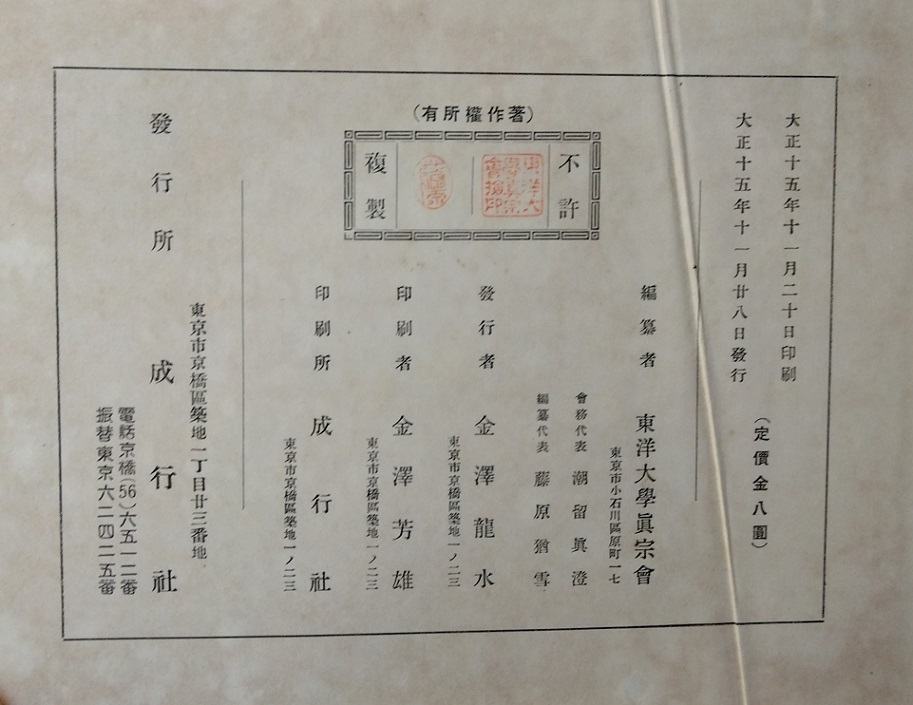 大正十五年十一月二十日印刷
大正十五年十一月廿八日發行
(定價金八圓)
(著作權所有)
不許
複製
編纂者 東洋大學眞宗會
東京市小石川區原町一七
會務代表 潮留眞澄
編纂代表 藤原猶雪
發行者 金澤龍水
東京市京橋區築地一ノ二三
印刷者 金澤芳雄
東京市京橋區築地一ノ二三
印刷所 成行社
東京市京橋區築地一ノ二三
東京市京橋區築地一丁目廿三番地
發行所 成行社
電話京橋(56)六五一二番
振替東京六二四二五番